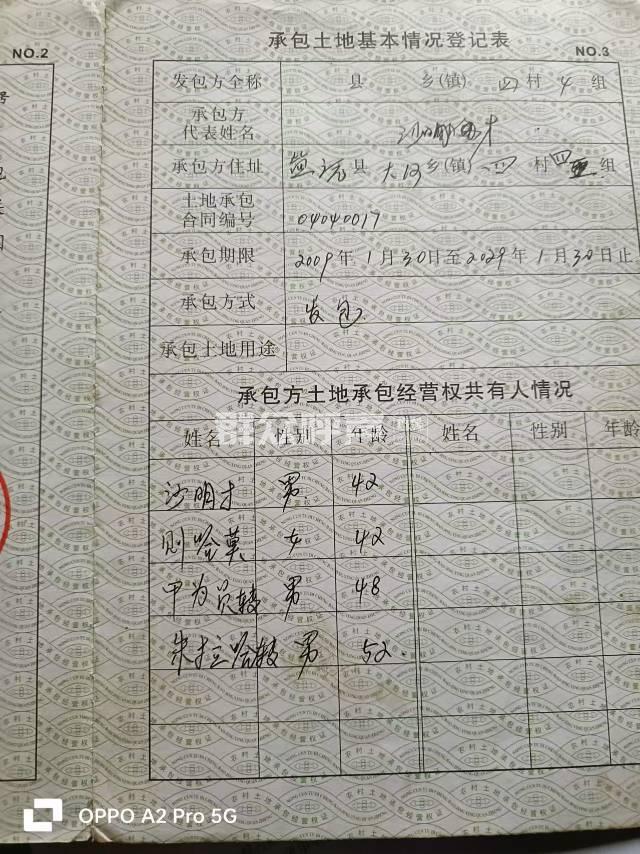 NO.2
承包土地基本情况登记表
NO.3
发包方全称 县 乡(镇) 四 村 4 组
承包方
代表姓名 沙明 才
承包方住址 盐源 县 大河 乡(镇) 四 村 四 组
土地承包
合同编号 04040017
承包期限 2009年1月30日至2029年1月30日止
承包方式 发包
承包土地用途
承包方土地承包经营权共有人情况
姓名 性别 年龄 姓名 性别 年龄
沙明才 男 42
则哈莫 女 42
甲为员转 男 48
朱拉哈转 男 52
群众呼声
OPPO A2 Pro 5G